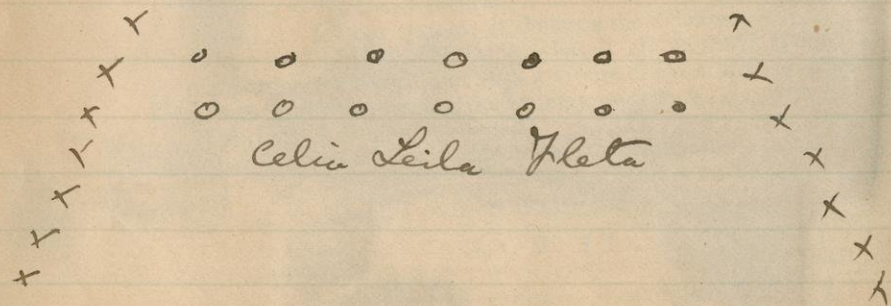 Celia Leila Fleta